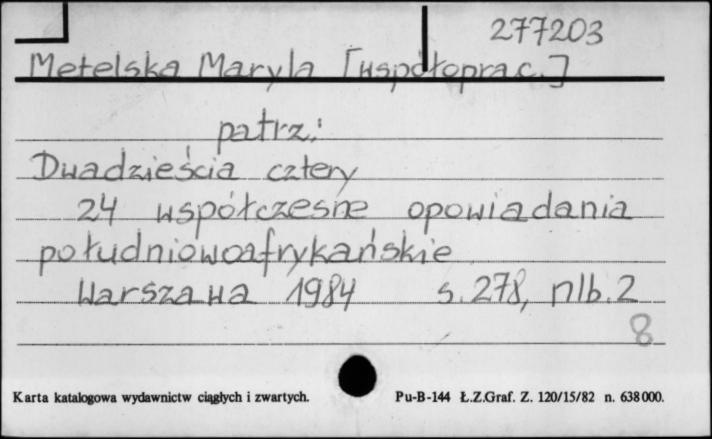 277203
Metelska Maryla [współoprac.]
patrz:
Dwadzieścia cztery
24 współczesne opowiadania
południowoafrykańskie
Warszawa 1984 s. 278, nlb. 2
8
Karta katalogowa wydawnictw ciągłych i zwartych. Pu-B-144 Ł.Z.Graf. Z. 120/15/82 n. 638000.